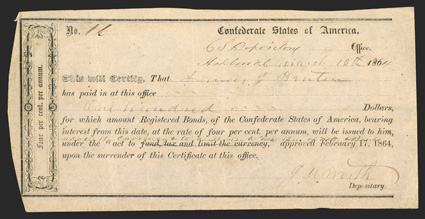 Four per cent. per annum.
No. 
Confederate States of America,
C S Depository Office,
March 10th 1864
This will Certify, That
has paid in at this office
One hundred Dollars,
for which amount Registered Bonds, of the Confederate States of America, bearing
interest from this date, at the rate of four per cent. per annum, will be issued to him,
under the act to fund, tax and limit the currency, approved February 17, 1864,
upon the surrender of this Certificate at this office.
Depositary.